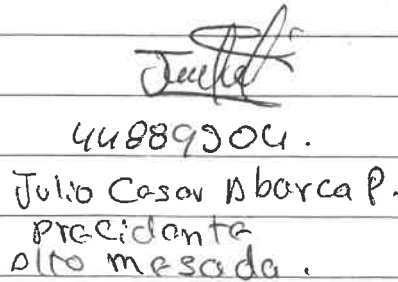 44889904.
Julio Cesar Abarca P.
precidente
Alto mesada.